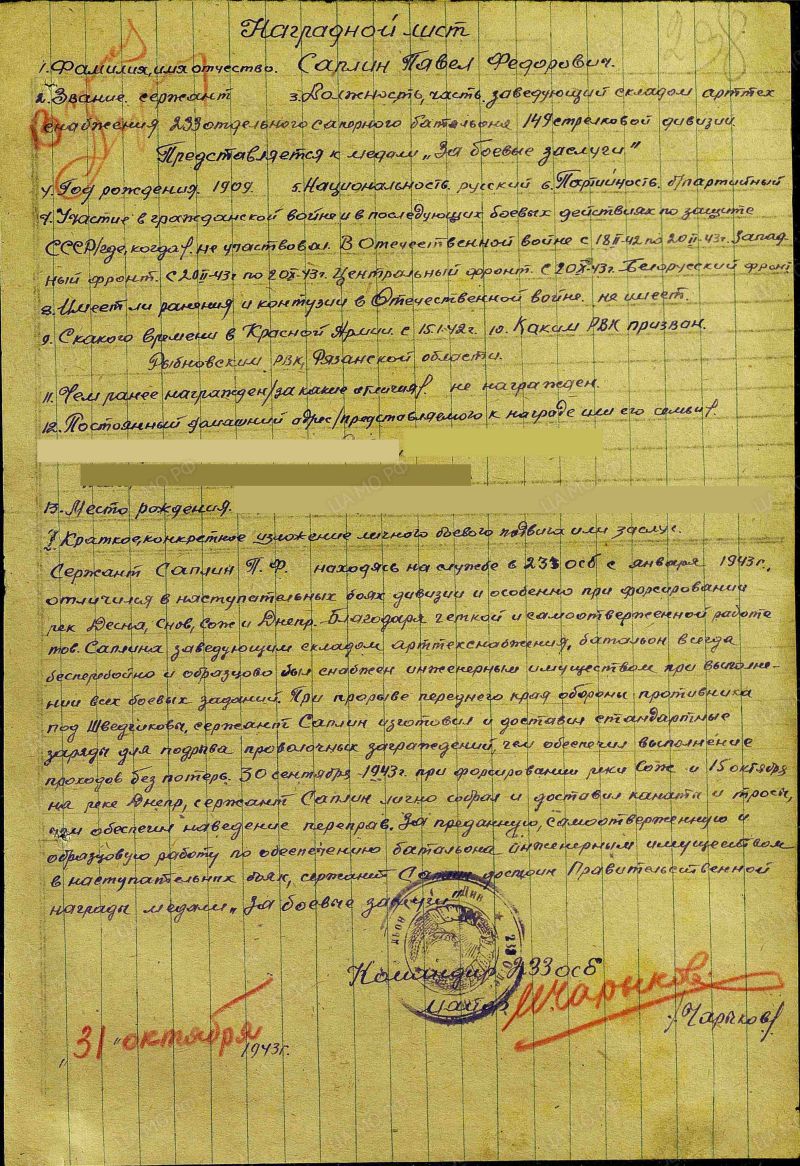 Наградной лист
238
1. Фамилия, имя отчество. Саплин Павел Федорович.
2. Звание сержант 3. Должность, часть. заведующий складом арттех
снабжения 233 отдельного саперного батальона 149 стрелковой дивизии
Представляется к медали „За боевые заслуги"
4. Год рождения. 1909. 5. Национальность. русский 6. Партийность. б/партийный
7. Участие в гражданской войне и в последующих боевых действиях по защите
СССР/где, когда/. не участвовал. В Отечественной войне с 18-II-42 по 20-II-43г. Запад-
ный фронт. С 20-II-43г по 20-X-43г. Центральный фронт. С 20-X-43г. Белорусский фронт
8. Имеет ли ранения и контузии в Отечественной войне. не имеет.
9. С какого времени в Красной Армии. с 15.1.42г. 10. Каким РВК призван.
Рыбновским РВК, Рязанской области.
11. Чем ранее награжден/за какие отличия/. не награжден.
12. Постоянный домашний адрес/представляемого к награде или его семьи/.
13. Место рождения.
I. Краткое, конкретное изложение личного боевого подвига или заслуг.
Сержант Саплин П.Ф. находясь на службе в 233 осб с января 1943г.,
отличился в наступательных боях дивизии и особенно при форсировании
рек Десна, Снов, Сож и Днепр. Благодаря четкой и самоотверженной работе
тов. Саплина заведующим складом арттехснабжения, батальон всегда
бесперебойно и образцово был снабжен инженерным имуществом при выполне-
нии всех боевых заданий. При прорыве переднего края обороны противника
под Шведчиковы, сержант Саплин изготовил и доставил стандартные
заряды для подрыва проволочных заграждений, чем обеспечил выполнение
проходов без потерь. 30 сентября 1943г. при форсировании реки Сож и 15 октября
на реке Днепр, сержант Саплин лично собрал и доставил канаты и тросы,
чем обеспечил наведение переправ. За преданную, самоотверженную и
образцовую работу по обеспечению батальона инженерным имуществом
в наступательных боях, сержант Саплин достоин Правительственной
награды медали „За боевые заслуги"
Командир 233 осб
майор. Чарыков.
/Чарыков/
„31" октября 1943г.
ЦАМО РФ